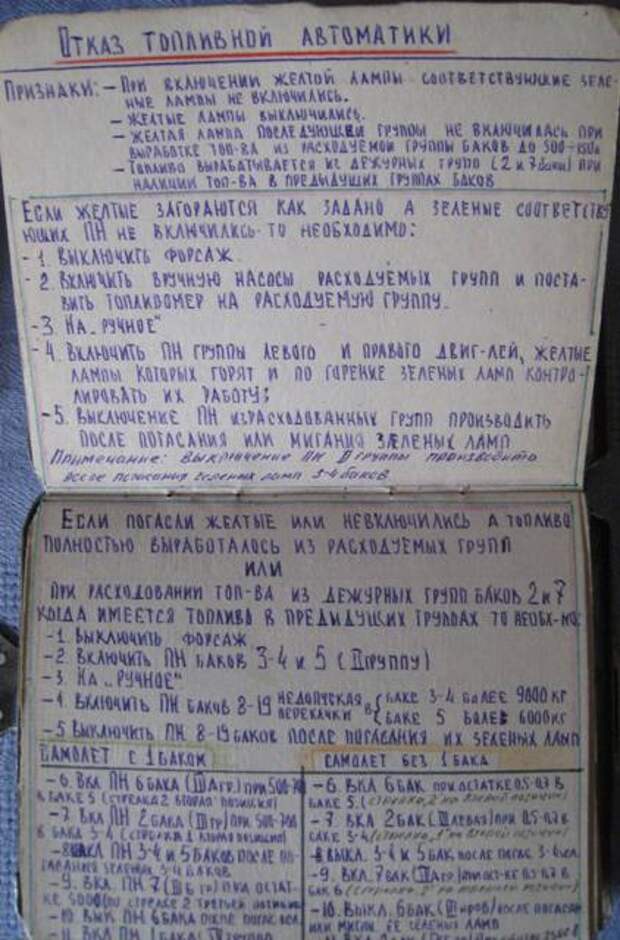 ОТКАЗ ТОПЛИВНОЙ АВТОМАТИКИ
ПРИЗНАКИ: – ПРИ ВКЛЮЧЕНИИ ЖЕЛТОЙ ЛАМПЫ СООТВЕТСТВУЮЩИЕ ЗЕЛЕ-
НЫЕ ЛАМПЫ НЕ ВКЛЮЧИЛИСЬ.
– ЖЕЛТЫЕ ЛАМПЫ ВЫКЛЮЧИЛИСЬ.
– ЖЕЛТАЯ ЛАМПА ПОСЛЕДУЮЩЕЙ ГРУППЫ НЕ ВКЛЮЧИЛАСЬ ПРИ
ВЫРАБОТКЕ ТОП-ВА ИЗ РАСХОДУЕМОЙ ГРУППЫ БАКОВ ДО 500-
– ТОПЛИВО ВЫРАБАТЫВАЕТСЯ ИЗ ДЕЖУРНЫХ ГРУПП (2 и 7 баки) ПРИ
НАЛИЧИИ ТОП-ВА В ПРЕДЫДУЩИХ ГРУППАХ БАКОВ
ЕСЛИ ЖЕЛТЫЕ ЗАГОРАЮТСЯ КАК ЗАДАНО А ЗЕЛЕНЫЕ СООТВЕТСТВУ
ЮЩИХ ПН НЕ ВКЛЮЧИЛИСЬ-ТО НЕОБХОДИМО:
– 1. ВЫКЛЮЧИТЬ ФОРСАЖ.
– 2. ВКЛЮЧИТЬ ВРУЧНУЮ НАСОСЫ РАСХОДУЕМЫХ ГРУПП И ПОСТА-
ВИТЬ ТОПЛИВОМЕР НА РАСХОДУЕМУЮ ГРУППУ.
– 3. НА „РУЧНОЕ"
– 4. ВКЛЮЧИТЬ ПН ГРУППЫ ЛЕВОГО И ПРАВОГО ДВИГ-ЛЕЙ, ЖЕЛТЫЕ
ЛАМПЫ КОТОРЫХ ГОРЯТ И ПО ГОРЕНИЕ ЗЕЛЕНЫХ ЛАМП КОНТРО-
ЛИРОВАТЬ ИХ РАБОТУ;
– 5. ВЫКЛЮЧЕНИЕ ПН ИЗРАСХОДОВАННЫХ ГРУПП ПРОИЗВОДИТЬ
ПОСЛЕ ПОГАСАНИЯ ИЛИ МИГАНИЯ ЗЕЛЕНЫХ ЛАМП
Примечание: выключение ПН II группы производить
после погасания зеленых ламп 3-4 баков
ЕСЛИ ПОГАСЛИ ЖЕЛТЫЕ ИЛИ НЕВКЛЮЧИЛИСЬ А ТОПЛИВО
ПОЛНОСТЬЮ ВЫРАБОТАЛОСЬ ИЗ РАСХОДУЕМЫХ ГРУПП
ИЛИ
ПРИ РАСХОДОВАНИИ ТОП-ВА ИЗ ДЕЖУРНЫХ ГРУПП БАКОВ 2 и 7
КОГДА ИМЕЕТСЯ ТОПЛИВО В ПРЕДЫДУЩИХ ГРУППАХ ТО НЕОБХ-МО:
– 1. ВЫКЛЮЧИТЬ ФОРСАЖ
– 2. ВКЛЮЧИТЬ ПН БАКОВ 3-4 и 5 (II ГРУППУ)
– 3. НА „РУЧНОЕ"
– 4. ВКЛЮЧИТЬ ПН БАКОВ 8-19 НЕДОПУСКАЯ ПЕРЕКАЧКИ В { БАКЕ 3-4 БОЛЕЕ 9000 КГ
БАКЕ 5 БОЛЕЕ 6000 КГ
– 5 ВЫКЛЮЧИТЬ ПН 8-19 БАКОВ ПОСЛЕ ПОГАСАНИЯ ИХ ЗЕЛЕНЫХ ЛАМП
САМОЛЕТ С 1 БАКОМ
– 6. ВКЛ ПН 6 БАКА ПРИ 500-
В БАКЕ 5 (СТРЕЛКА 2 ВТОРАЯ ПОЗИЦИЯ)
– 7 ВКЛ ПН 2 БАКА ПРИ 500-700
В БАКА 3-4 (СТРЕЛКА 1 ВТОРАЯ ПОЗИЦИЯ)
– 8 ВЫКЛ ПН 3-4 и 5 БАКОВ ПОСЛЕ ПО-
ГАСАНИЯ ЗЕЛЕНЫХ 3-4 БАКОВ
– 9. ВКЛ. ПН 7 ПРИ ОСТАТ-
КЕ 5000 (ПО СТРЕЛКЕ 2 ТРЕТЬЕЙ
– 10. ВЫК ПН 6 БАКА ПОСЛЕ
– 11. ВКЛ ПН 1 БАКА
САМОЛЕТ БЕЗ 1 БАКА
– 6. ВКЛ 6 БАК ПРИ ОСТАТКЕ 0.5-0.7 В
БАКЕ 5.
– 7. ВКЛ 2 БАК ПРИ 0.5-0.7 В
БАКЕ 3-4
– 8 ВЫКЛ. 3-4 и 5 БАК ПОСЛЕ
– 9. ВКЛ. 7 БАК
БАК 6
– 10. ВЫКЛ. 6 БАК ПОСЛЕ
ИЛИ ЕЕ ЗЕЛЕНЫХ ЛАМП